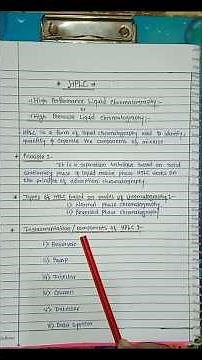 * HPLC *
High Performance Liquid Chromatography :-
or
High Pressure Liquid Chromatography
HPLC is a form of liquid chromatography used to identify,
quantify & separate the components of mixture
* Principle :-
It is a separation technique based on solid
stationary phase & liquid mobile phase HPLC works on
the principle of adsorption chromatography
* Types of HPLC based on modes of chromatography :-
i) Normal phase chromatography
ii) Reversed phase chromatography
* Instrumentation / components of HPLC :-
i) Reservoir
ii) Pump
iii) Injector
iv) Column
v) Detector
vi) Data System